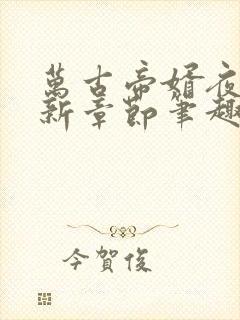 萬古帝婿夜
新章節筆趣
今賀俊